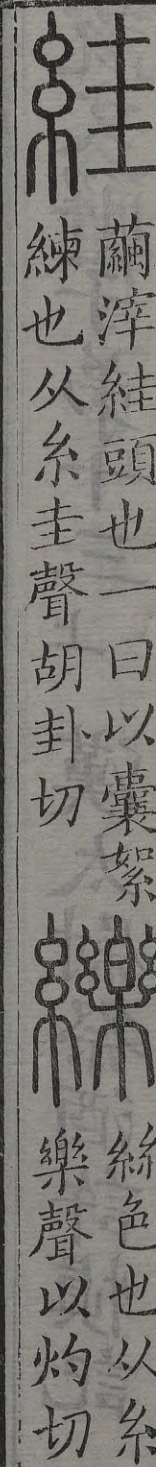 絓
繭滓絓頭也一曰以囊絮
練也从糸圭聲胡卦切
纅
絲色也从糸
樂聲以灼切